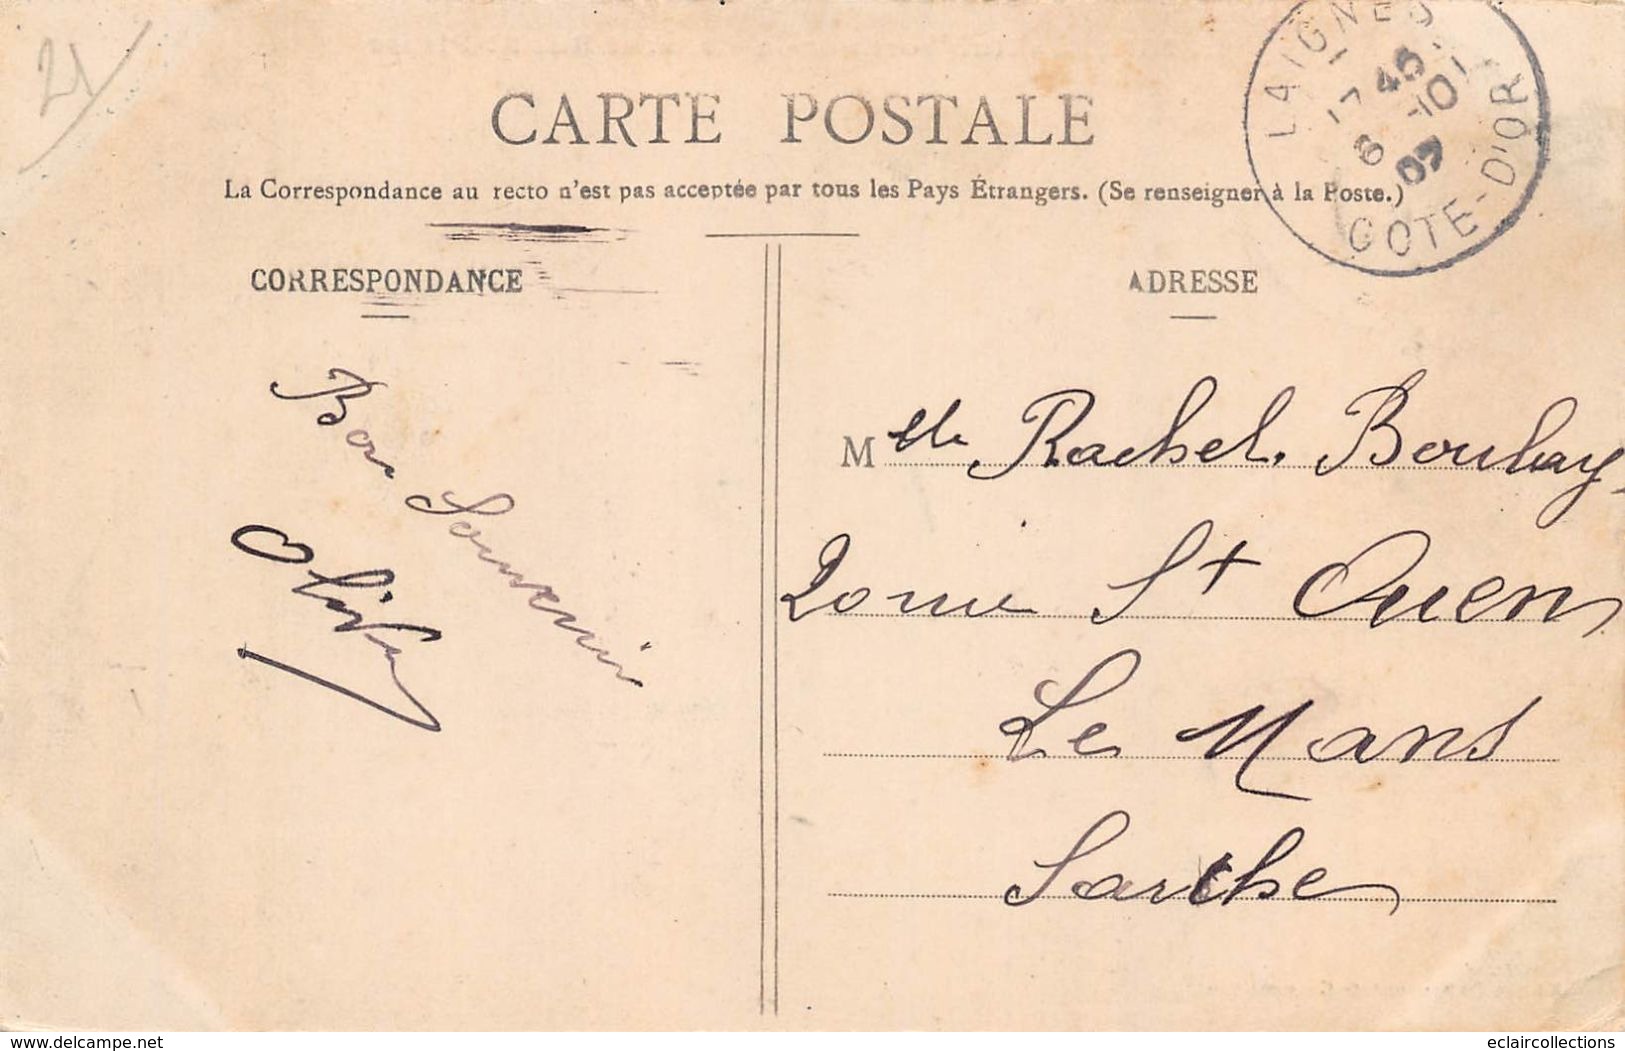 21
LAIGNES
17 45
6 -10
09
COTE-D'OR
CARTE POSTALE
La Correspondance au recto n'est pas acceptée par tous les Pays Étrangers. (Se renseigner à la Poste.)
CORRESPONDANCE
Bon Souvenir
ADRESSE
Mlle Rachel Boulay
St Ouen
Le Mans
Sarthe
www.delcampe.net
eclaircollections